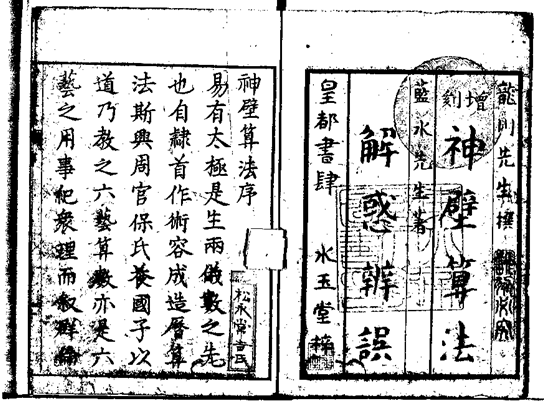 龍川先生撰
増刻
神壁算法
藍水先生著
解惑辨誤
皇都書肆
水玉堂梓
神壁算法序
易有太極是生兩儀數之先
也自隸首作術容成造曆算
法斯興周官保氏養國子以
道乃教之六藝算數亦是六
藝之用事紀衆理而叙群倫